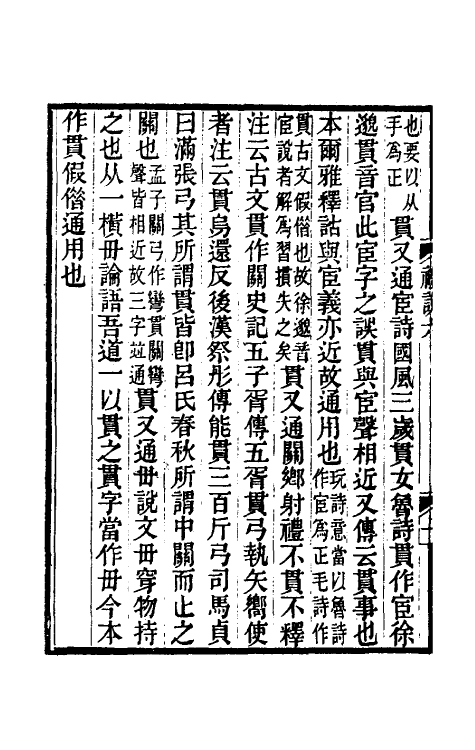 也要以从手為正貫又通宦詩國風三歲貫女魯詩貫作宦徐
邈貫音官此宦字之誤貫與宦聲相近又傳云貫事也
本爾雅釋詁與宦義亦近故通用也玩詩意當以魯詩作宦為正毛詩作
貫古文假偕也故徐邈音宦說者解為習摜失之矣貫又通關鄉射禮不貫不釋
注云古文貫作關史記五子胥傳五胥貫弓執矢嚮使
者注云貫烏還反後漢祭彤傳能貫三百斤弓司馬貞
曰滿張弓其所謂貫皆卽呂氏春秋所謂中關而止之
關也孟子關弓作彎貫關彎聲皆相近故三字竝通貫又通毌說文毌穿物持
之也从一橫毌論語吾道一以貫之貫字當作毌今本
作貫假偕通用也